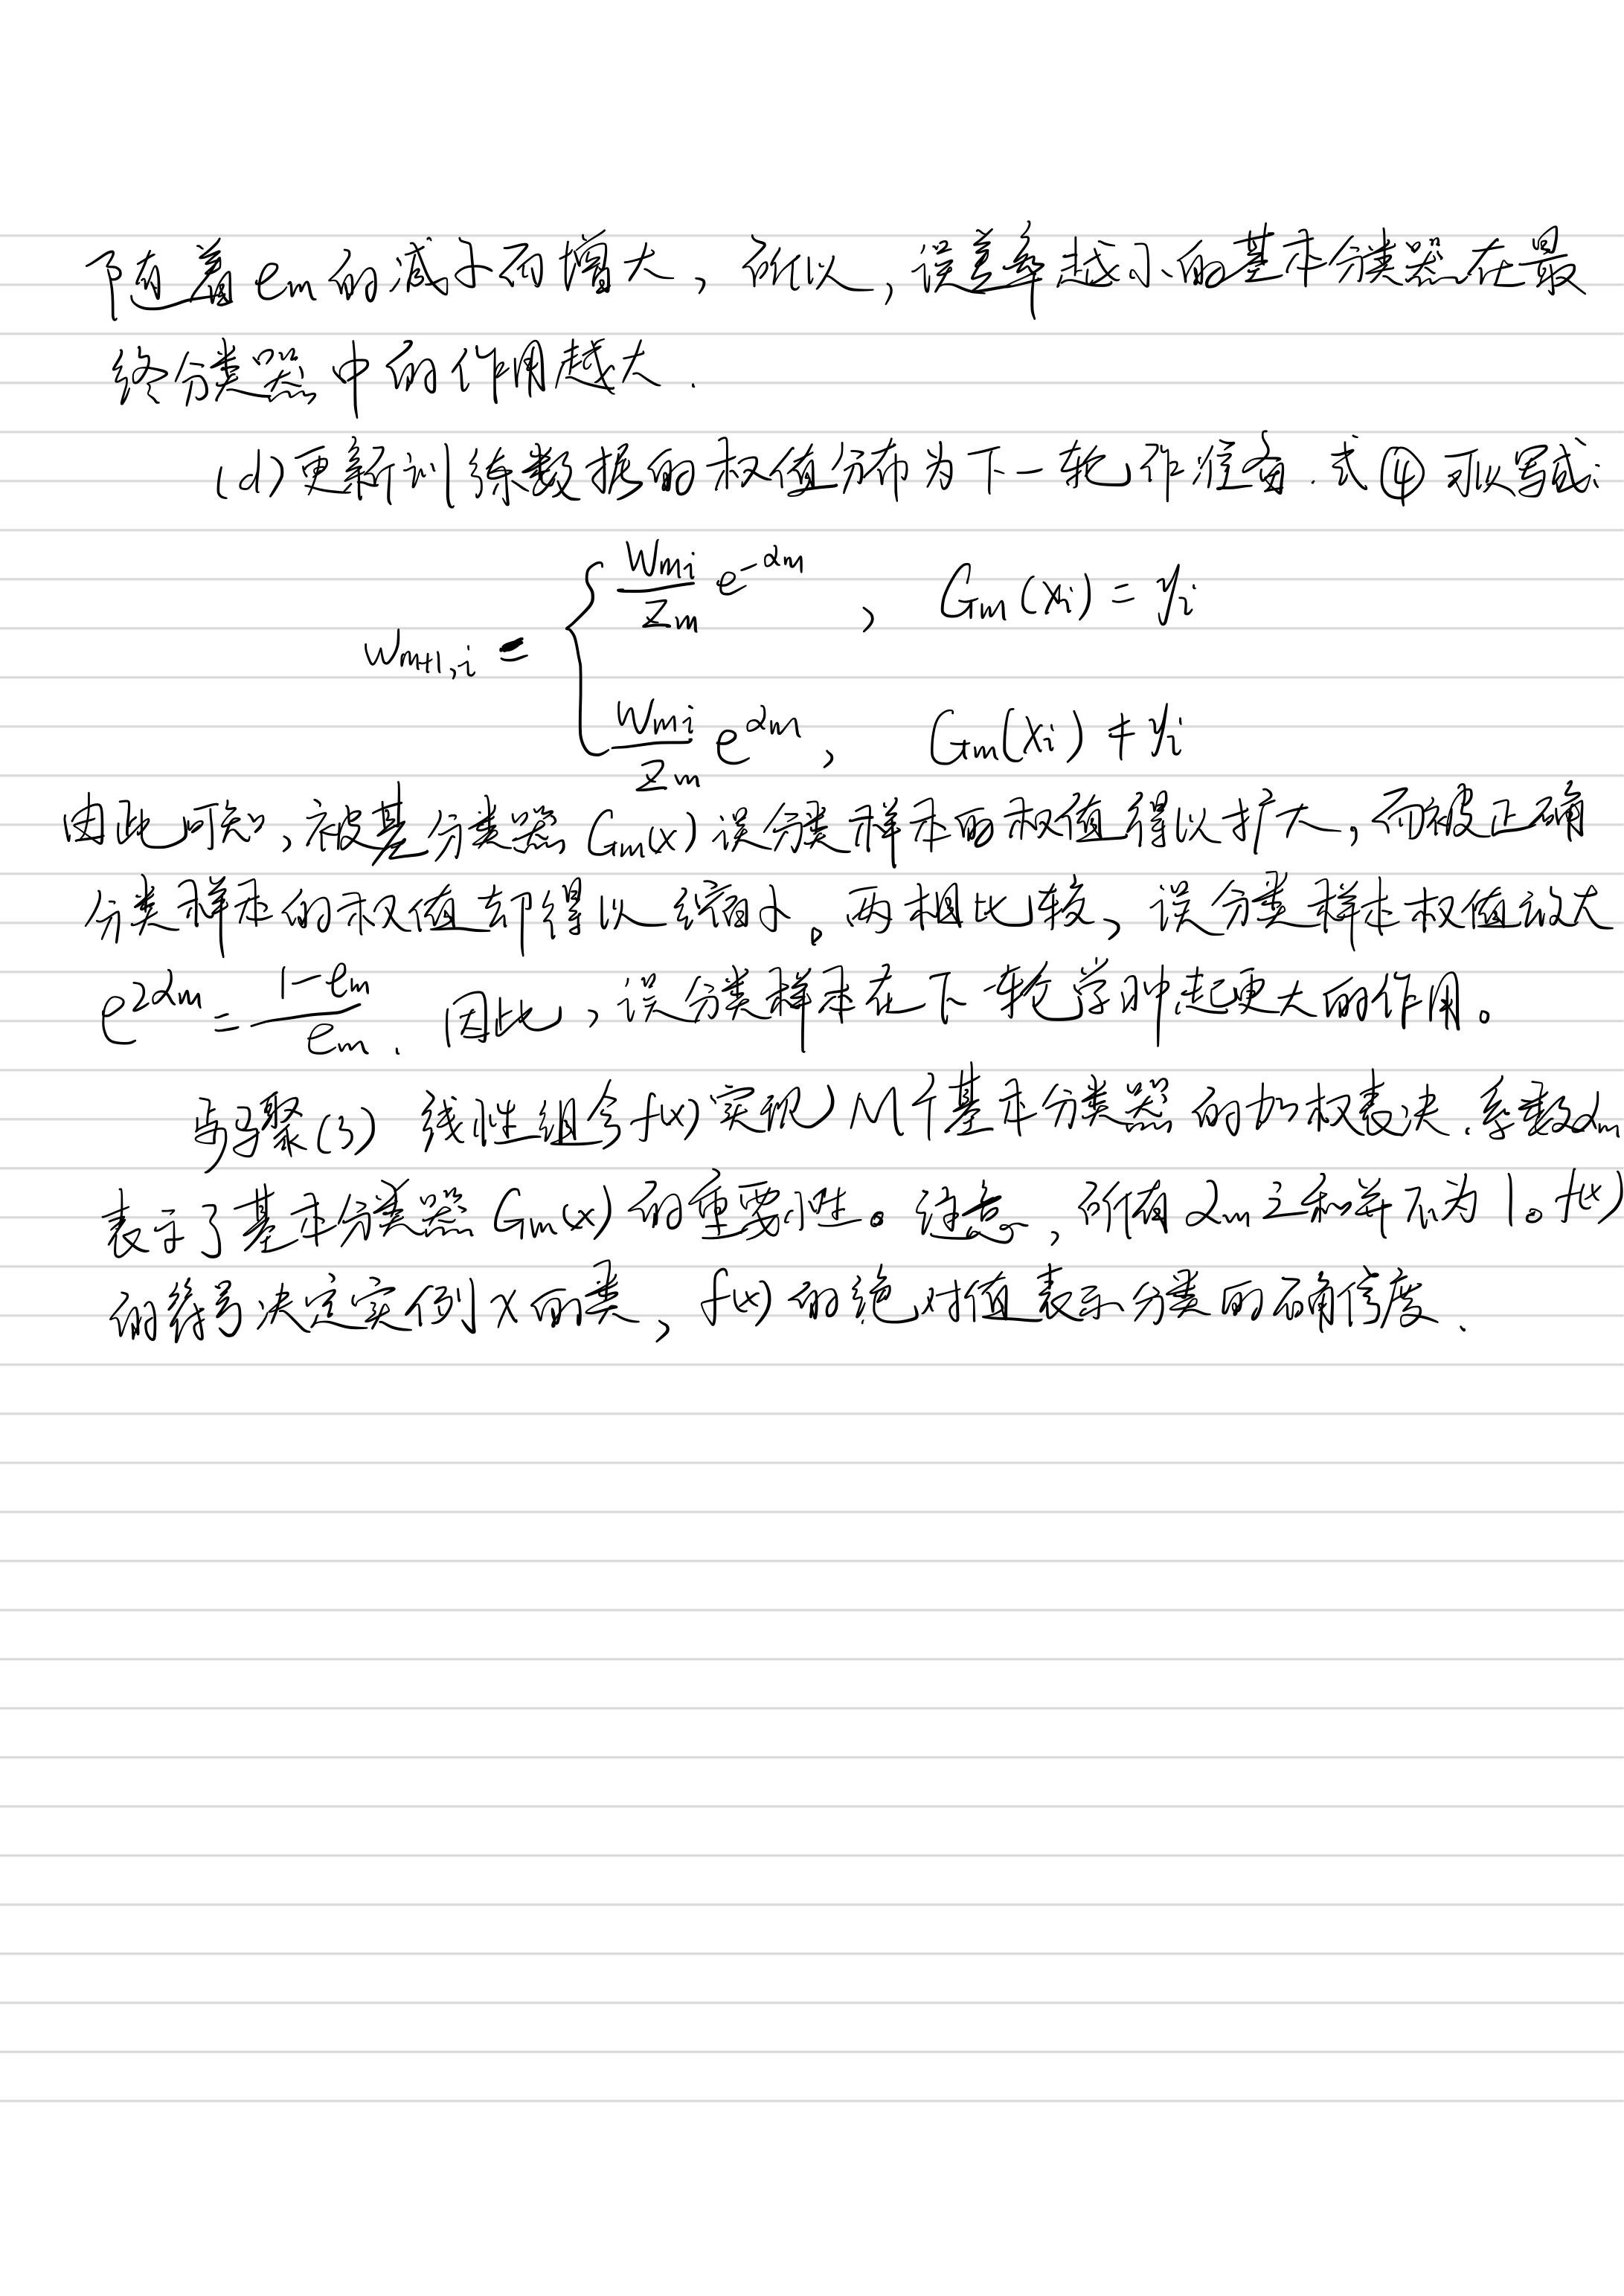 随着 em 的减小而增大，所以，误差率越小的基本分类器在最
终分类器中的作用越大.
(d) 更新训练数据的权值分布为下一轮作准备. 式④可以写成:
w_{m+1,i} = { \frac{w_{mi}}{Z_m} e^{-α_m} , G_m(x_i) = y_i
\frac{w_{mi}}{Z_m} e^{α_m} , G_m(x_i) ≠ y_i
由此可知，被基分类器 Gm(x) 误分类样本的权值得以扩大，而被正确
分类样本的权值却得以缩小。两相比较，误分类样本权值放大
e^{2α_m} = \frac{1-e_m}{e_m}. 因此，误分类样本在下一轮学习中起更大的作用。
步骤(3) 线性组合 f(x) 实现 M 个基本分类器的加权表决. 系数 αm
表示了基本分类器 Gm(x) 的重要性。注意，所有 αm 之和并不为 1。f(x)
的符号决定实例 x 的类，f(x) 的绝对值表示分类的确信度.